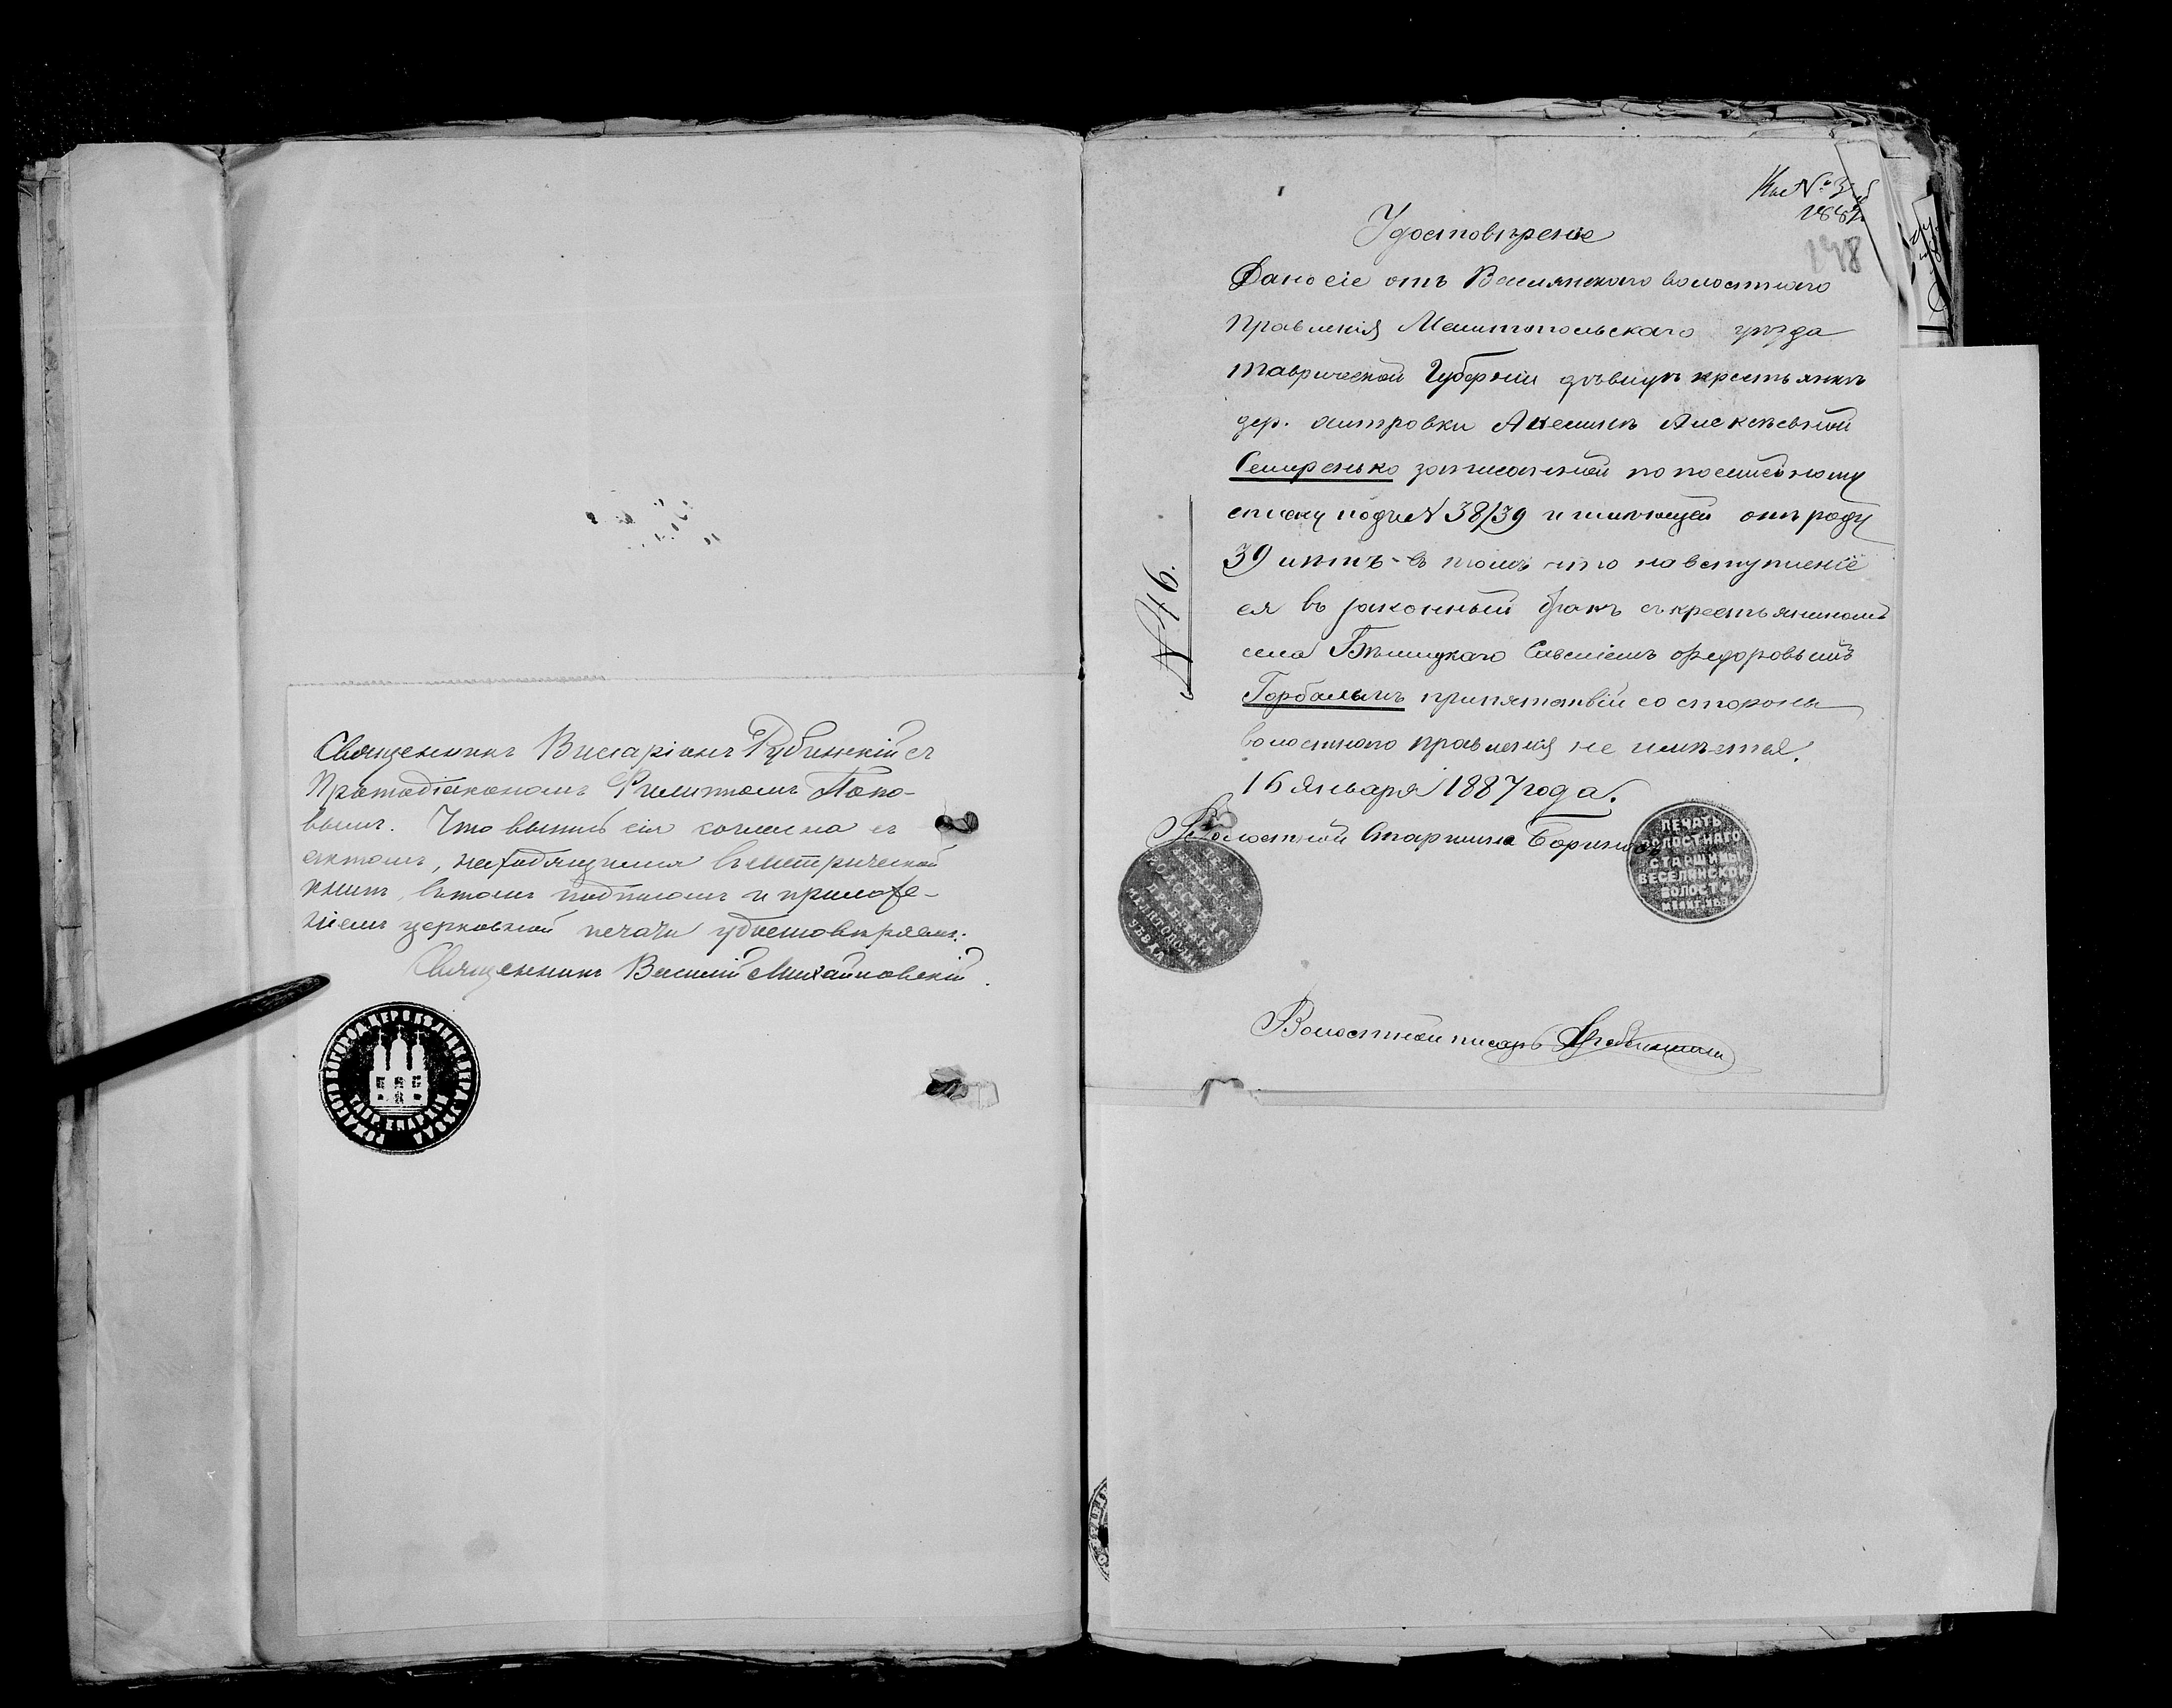 Священникъ Виссаріонъ Рубинскій съ
Протодіакономъ Филиппомъ Попо-
вымъ. Что выпись сія согласна съ
актомъ, находящимся въ метрической
книгѣ, въ томъ подписомъ и приложе-
ніемъ церковной печати удостовѣряемъ:
Священникъ Василій Михайловскій.
№
188
148
Удостовѣреніе
Дано сіе отъ Веселянскаго волостного
Правленія Мелитопольскаго уѣзда
Таврической Губерніи дѣвицѣ крестьянкѣ
дер. Аксиньѣ Алексѣевной
Семиренько записанной по посемейному
списку подъ № 38/39 и имѣющей отъ роду
39 лѣтъ въ томъ что на вступленіе
ея въ законный бракъ съ крестьяниномъ
села Бѣлицкаго Савеліемъ Федоровымъ
Горбалымъ припятствій со стороны
волостного правленія не имѣется.
16 Января 1887 года.
№ 46.
Волостной Старшина
ПЕЧАТЬ
ВОЛОСТНАГО
СТАРШИНЫ
ВЕСЕЛЯНСКОЙ
ВОЛОСТИ
Волостной писарь